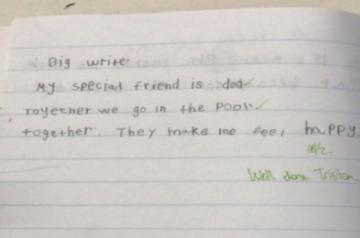 Big write
My special friend is dad
Together we go in the Pool.
together. They make me feel happy.
Well done Tristan.